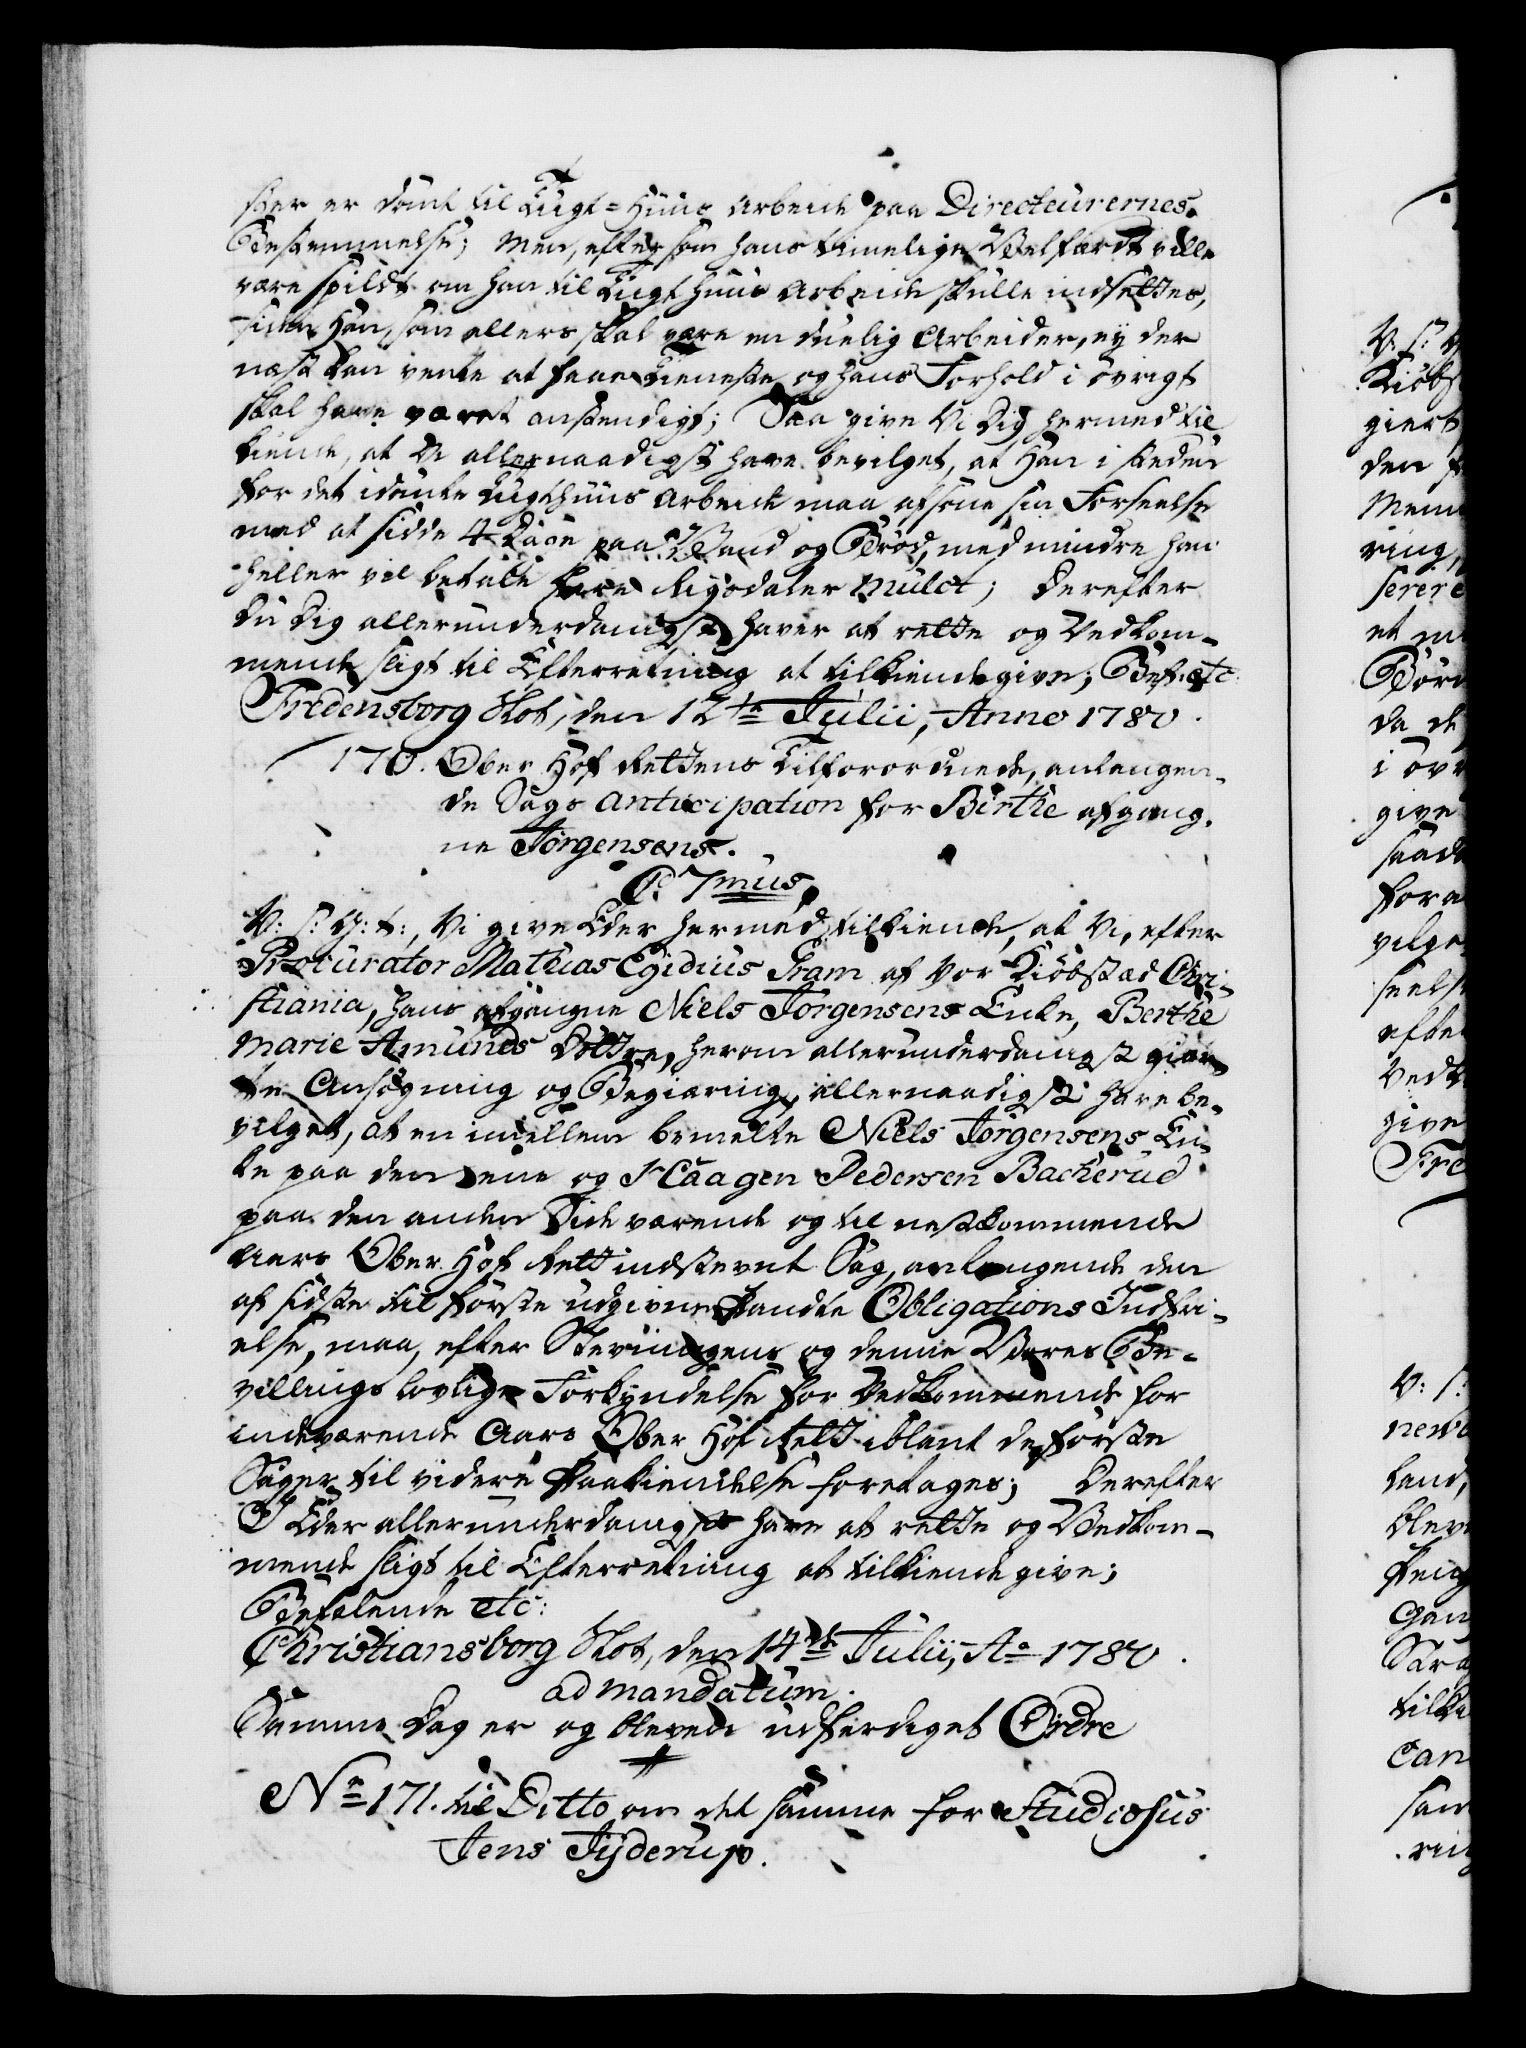 ster er dömt til Tugt-Huus Arbeide paa Directeurernes
Bestemmelse; Men, eftersom hans timelige Velfærdt ville
være spildt om han til Tugthuus Arbeide skulle indsettes,
siden Han, som ellers skal være en duelig Arbeider, ey der
næst kan vente at faae Tieneste, og hans Forhold i övrigt
skal have været anstendigt; Saa give Vi Dig hermed til
kiende, at Vi allernaadigst have bevilget, at Han i steden
for det idömte Tugthuus Arbeide maa afsone sin Forseelse
med at sidde 4 Dage paa Vand og Bröd, med mindre han
heller vil betale Rigsdaler Mulct; Derefter
Du Dig allerunderdanigst haver at rette og Vedkom-
mende sligt til Efterretning at tilkiendegive; Bef: etc:
Fredensborg Slot, den 12te Julii, Anno 1780.
170. Ober Hof Rettens Tilforordnede, anlangen-
de Sags Anticipation for Birthe afgang-
ne Jörgensens.
C: 7mus,
V: S: G: T:, Vi give Eder hermed tilkiende, at Vi, efter
Procurator Mathias Egidius Fram af Vor Kiöbstæd Chri-
stiania, hans afgangne Niels Jörgensens Enke, Berthe
Marie Amunds Dotter, herom allerunderdanigst giør-
te Ansögning og Begiæring, allernaadigst have be-
vilget, at en imellem bemelte Niels Jörgensens En-
ke paa den ene og Haagen Pedersen Backerud
paa den anden Side værende og til nestkommende
Aars Ober Hof Rett indstevnt Sag, anlangende den
af sidste til förste udgivne Pandte Obligations Indfri-
else, maa, efter Stevningens og denne Vores Be-
villings lovlige Forkyndelse for Vedkommende for
indeværende Aars Ober Hof Rett iblant de förste
Sager til videre Paakiendelse foretages; Derefter
I Eder allerunderdanigst have at rette og Vedkom-
mende sligt til Efterretning at tilkiendegive;
Befalende etc:
Christiansborg Slot, den 14de Julii, Ao 1780.
ad mandatum.
Samme Dag er og bleven udferdiget Ordre
No 171. til Ditto om det samme for Studiosus
Jens Tyderup.